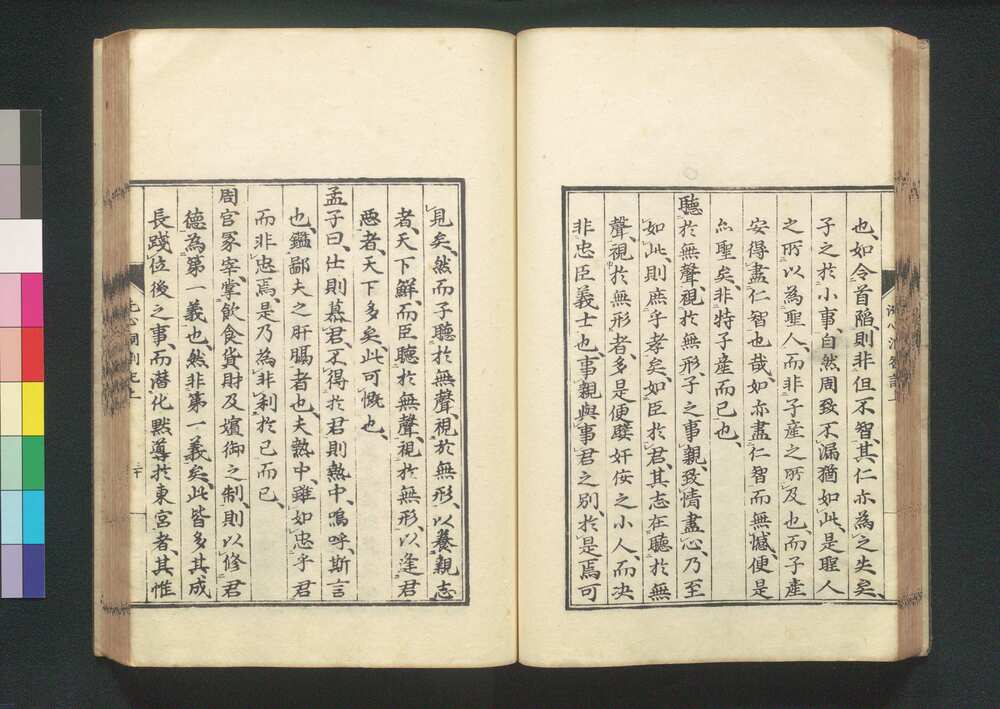 也、如令首陷、則非但不智、其仁亦為之失矣、
子之於小事、自然周致不漏猶如此、是聖人
之所以為聖人、而非子産之所及也、而子産
安得盡仁智也哉、如亦盡仁智而無憾、便是
亦聖矣、非特子産而已也、
聽於無聲、視於無形、子之事親、致情盡心、乃至
如此、則庶乎孝矣、如臣於君、其志在聽於無
聲、視於無形者、多是便嬖奸佞之小人、而决
非忠臣義士也、事親與事君之別、於是焉可
見矣、然而子聽於無聲、視於無形、以養親志
者、天下鮮、而臣聽於無聲、視於無形、以逢君
惡者、天下多矣、此可慨也、
孟子曰、仕則慕君、不得於君則熱中、嗚呼、斯言
也、鑑鄙夫之肝腸者也、夫熱中、雖如忠乎君
而非忠焉、是乃為非利於己而已、
周官冢宰、掌飲食貨財及嬪御之制、則以修君
德為第一義也、然非第一義矣、此皆多其成
長踐位後之事、而潛化黙導於東宮者、其惟
洗心洞劄記上
三十